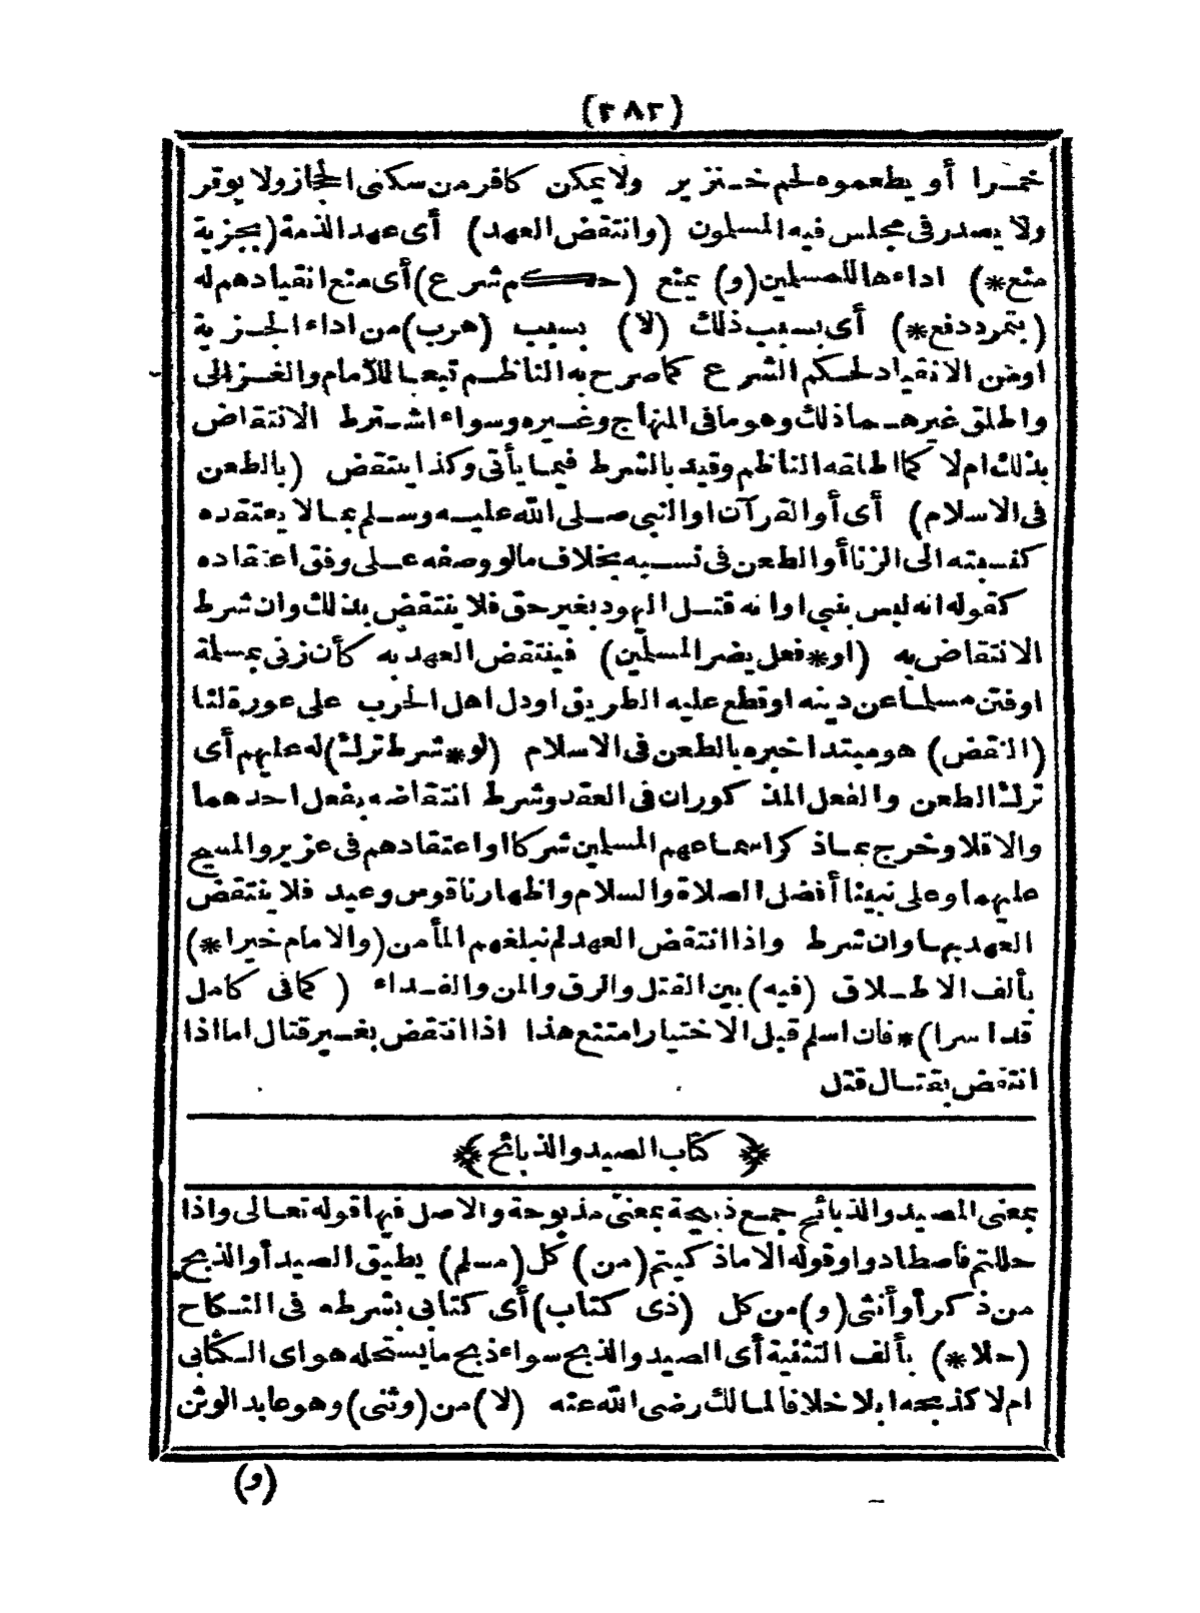 (٢٨٢)
خمرا أو يطعموه لحم خنزير ولا يمكن كافر من سكنى الحجاز ولا يوقر
ولا يصدر فى مجلس فيه المسلمون (وانتقض العهد) أى عهد الذمة (بجزية
منع*) اداءها للمسلمين (و) يمنع (حكم شرع) أى منع انقيادهم له
(بتمرد دفع*) أى بسبب ذلك (لا) بسبب (هرب) من اداء الجزية
اومن الانقياد لحكم الشرع كما صرح به الناظم تبعا للأمام والغزالى
واطلق غيرهما ذلك وهو ما فى المنهاج وغيره وسواء اشترط الانتقاض
بذلك ام لا كما اطلقه الناظم وقيد بالشرط فيما يأتى وكذا ينتقض (بالطعن
فى الاسلام) أى أو القرآن او النبى صلى الله عليه وسلم بما لا يعتقده
كنسبته الى الزنا أو الطعن فى نسبه بخلاف مالو وصفه على وفق اعتقاده
كقوله انه ليس بنبى او انه قتل اليهود بغير حق فلا ينتقض بذلك وان شرط
الانتقاض به (او*فعل يضر المسلمين) فينتقض العهد به كأن زنى بمسلة
اوفتن مسلما عن دينه او قطع عليه الطريق اودل اهل الحرب على عورة لنا
(النقض) هو مبتدا خبره بالطعن فى الاسلام (لو*شرط ترك) له عليهم أى
ترك الطعن والفعل المذكوران فى العقد وشرط انتقاضه بفعل احدهما
والا فلا وخرج بما ذكر اسماعهم المسلمين شركا او اعتقادهم فى عزير والمسيح
عليهما وعلى نبينا أفضل الصلاة والسلام واظهار ناقوس وعيد فلا ينتقض
العهد بها وان شرط واذا انتقض العهد لم نبلغهم المأمن (والامام خيرا*)
بألف الاطلاق (فيه) بين القتل والرق والمن والفداء (كما فى كامل
قد اسرا)* فان اسلم قبل الاختيار امتنع هذا اذا انتقض بغير قتال اما اذا
انتقض بقتال قتل
﴿كتاب الصيد والذبائح﴾
بمعنى المصيد والذبائح جمع ذبيحة بمعنى مذبوحة والاصل فيها قوله تعالى واذا
حللتم فاصطادوا وقوله الا ماذكيتم (من) كل (مسلم) يطيق الصيد أو الذبح
من ذكر أو أنثى (و) من كل (ذى كتاب) أى كتابى بشرطه فى النكاح
(حلا*) بألف التثنية أى الصيد والذبح سواء ذبح ما يستحله هو اى الكتابى
ام لا كذبحه ابلا خلافا لمالك رضى الله عنه (لا) من (وثنى) وهو عابد الوثن
(و)